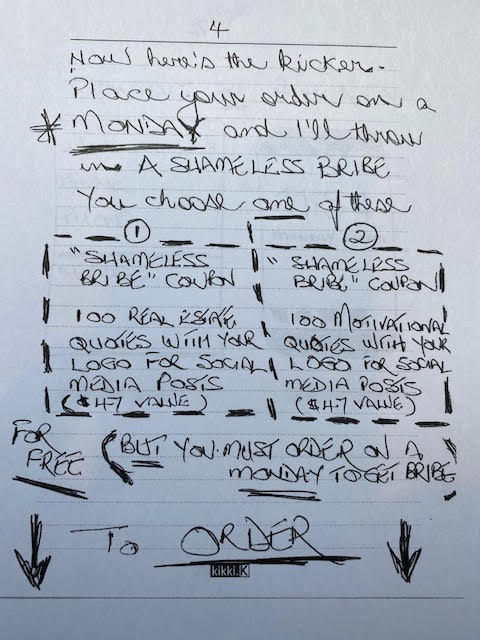 4
Now here's the kicker.
Place your order on a
* MONDAY and I'll throw
in A SHAMELESS BRIBE
You choose one of these
1
"SHAMELESS
BRIBE" COUPON
100 REAL ESTATE
QUOTES WITH YOUR
LOGO FOR SOCIAL
MEDIA POSTS
($47 VALUE)
2
"SHAMELESS
BRIBE" COUPON
100 MOTIVATIONAL
QUOTES WITH YOUR
LOGO FOR SOCIAL
MEDIA POSTS
($47 VALUE)
FOR
FREE
(BUT YOU MUST ORDER ON A
MONDAY TO GET BRIBE)
TO ORDER
kikki.K